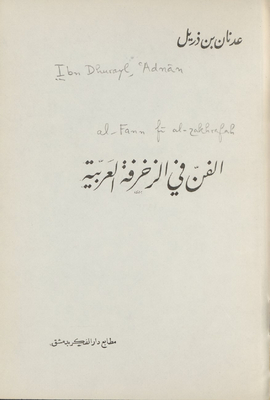 عدنان بن ذريل
Ibn Dhurayl, 'Adnān
al-Fann fī al-zakhrafah
الفن في الزخرفة العربية
مطابع دار الفكر بدمشق